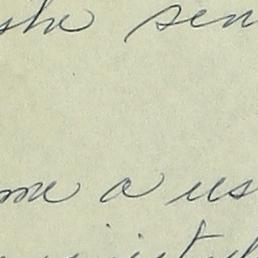 she sen
me a us